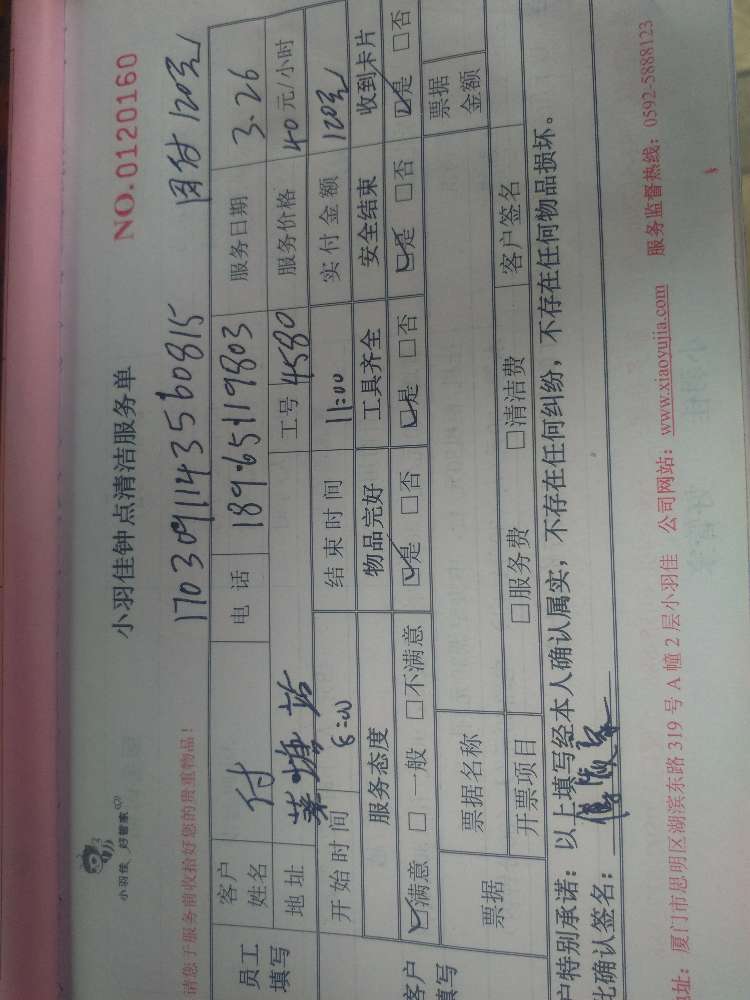 小羽佳 好管家
小羽佳钟点清洁服务单
NO.0120160
请您于服务前收拾好您的贵重物品!
1703091143560815 网付 120元
员工填写
客户姓名 付 电话 18965119803 服务日期 3.26
地址 莱塘站 工号 4580 服务价格 40元/小时
开始时间 8:00 结束时间 11:00 实付金额 120元
客户填写
服务态度 物品完好 工具齐全 安全结束 收到卡片
☑满意 □一般 □不满意 ☑是 □否 ☑是 □否 ☑是 □否 ☑是 □否
票据 票据名称 票据金额
开票项目 □服务费 □清洁费 客户签名
户特别承诺:以上填写经本人确认属实,不存在任何纠纷,不存在任何物品损坏。
比确认签名:
址:厦门市思明区湖滨东路319号A幢2层小羽佳 公司网站:www.xiaoyujia.com 服务监督热线:0592-5888123